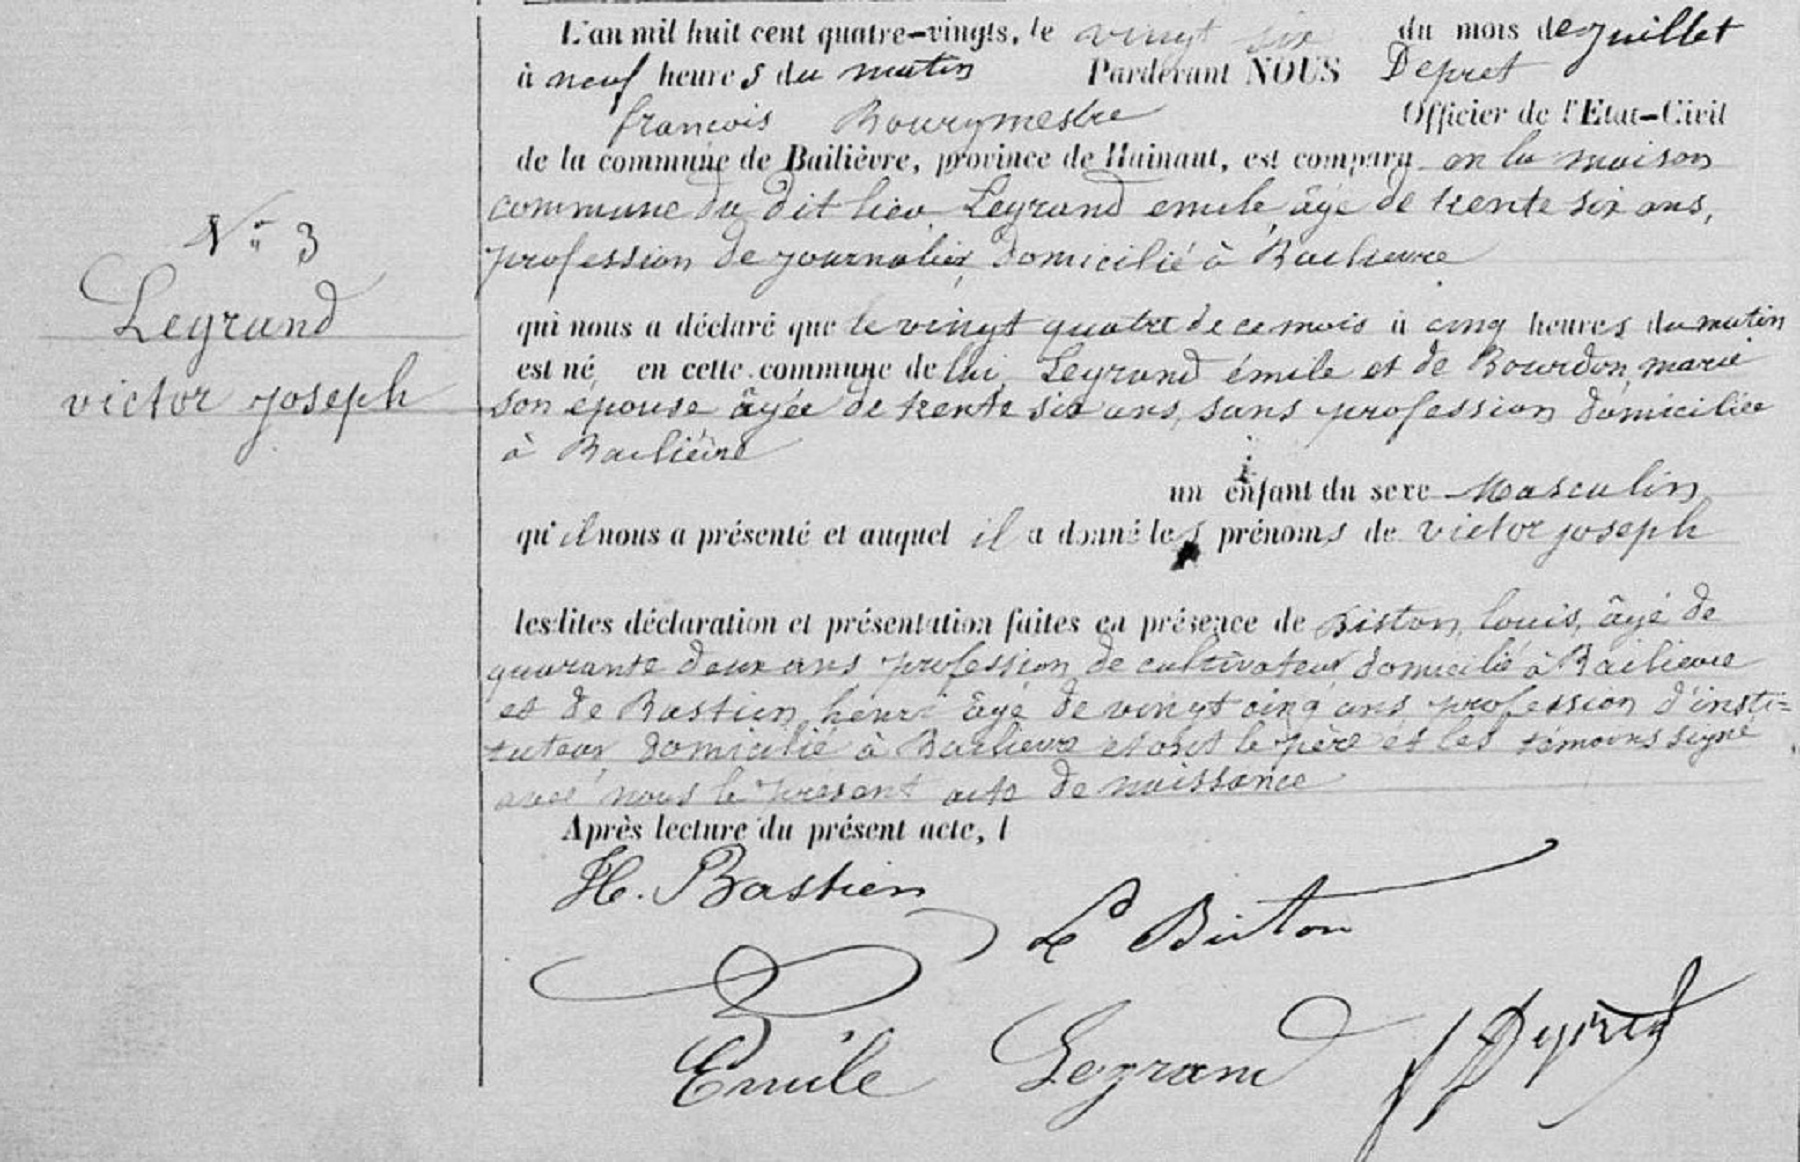 L'an mil huit cent quatre-vingts, le vingt six du mois de juillet
à neuf heures du matin Pardevant NOUS Depret
françois Bourgmestre Officier de l'Etat-Civil
de la commune de Bailièvre, province de Hainaut, est comparu en la maison
commune du dit lieu Legrand emile âgé de trente six ans,
profession de journalier, domicilié à Bailievre
N° 3
Legrand
victor joseph
qui nous a déclaré que le vingt quatre de ce mois à cinq heures du matin
est né en cette commune de lui, Legrand émile et de Bourdon, marie
son épouse âgée de trente six ans, sans profession domiciliée
à Bailièvre
un enfant du sexe Masculin
qu'il nous a présenté et auquel il a donné les prénoms de victor joseph
lesdites déclaration et présentation faites en présence de Biston, louis, âgé de
quarante deux ans profession de cultivateur domicilié à Bailievre
et de Bastien, henri âgé de vingt cinq ans profession d'insti=
tuteur domicilié à Bailievre et ont le père et les témoins signé
avec nous le présent acte de naissance
Après lecture du présent acte, l
H. Bastien
Ls Biston
Emile Legrand
f Depret